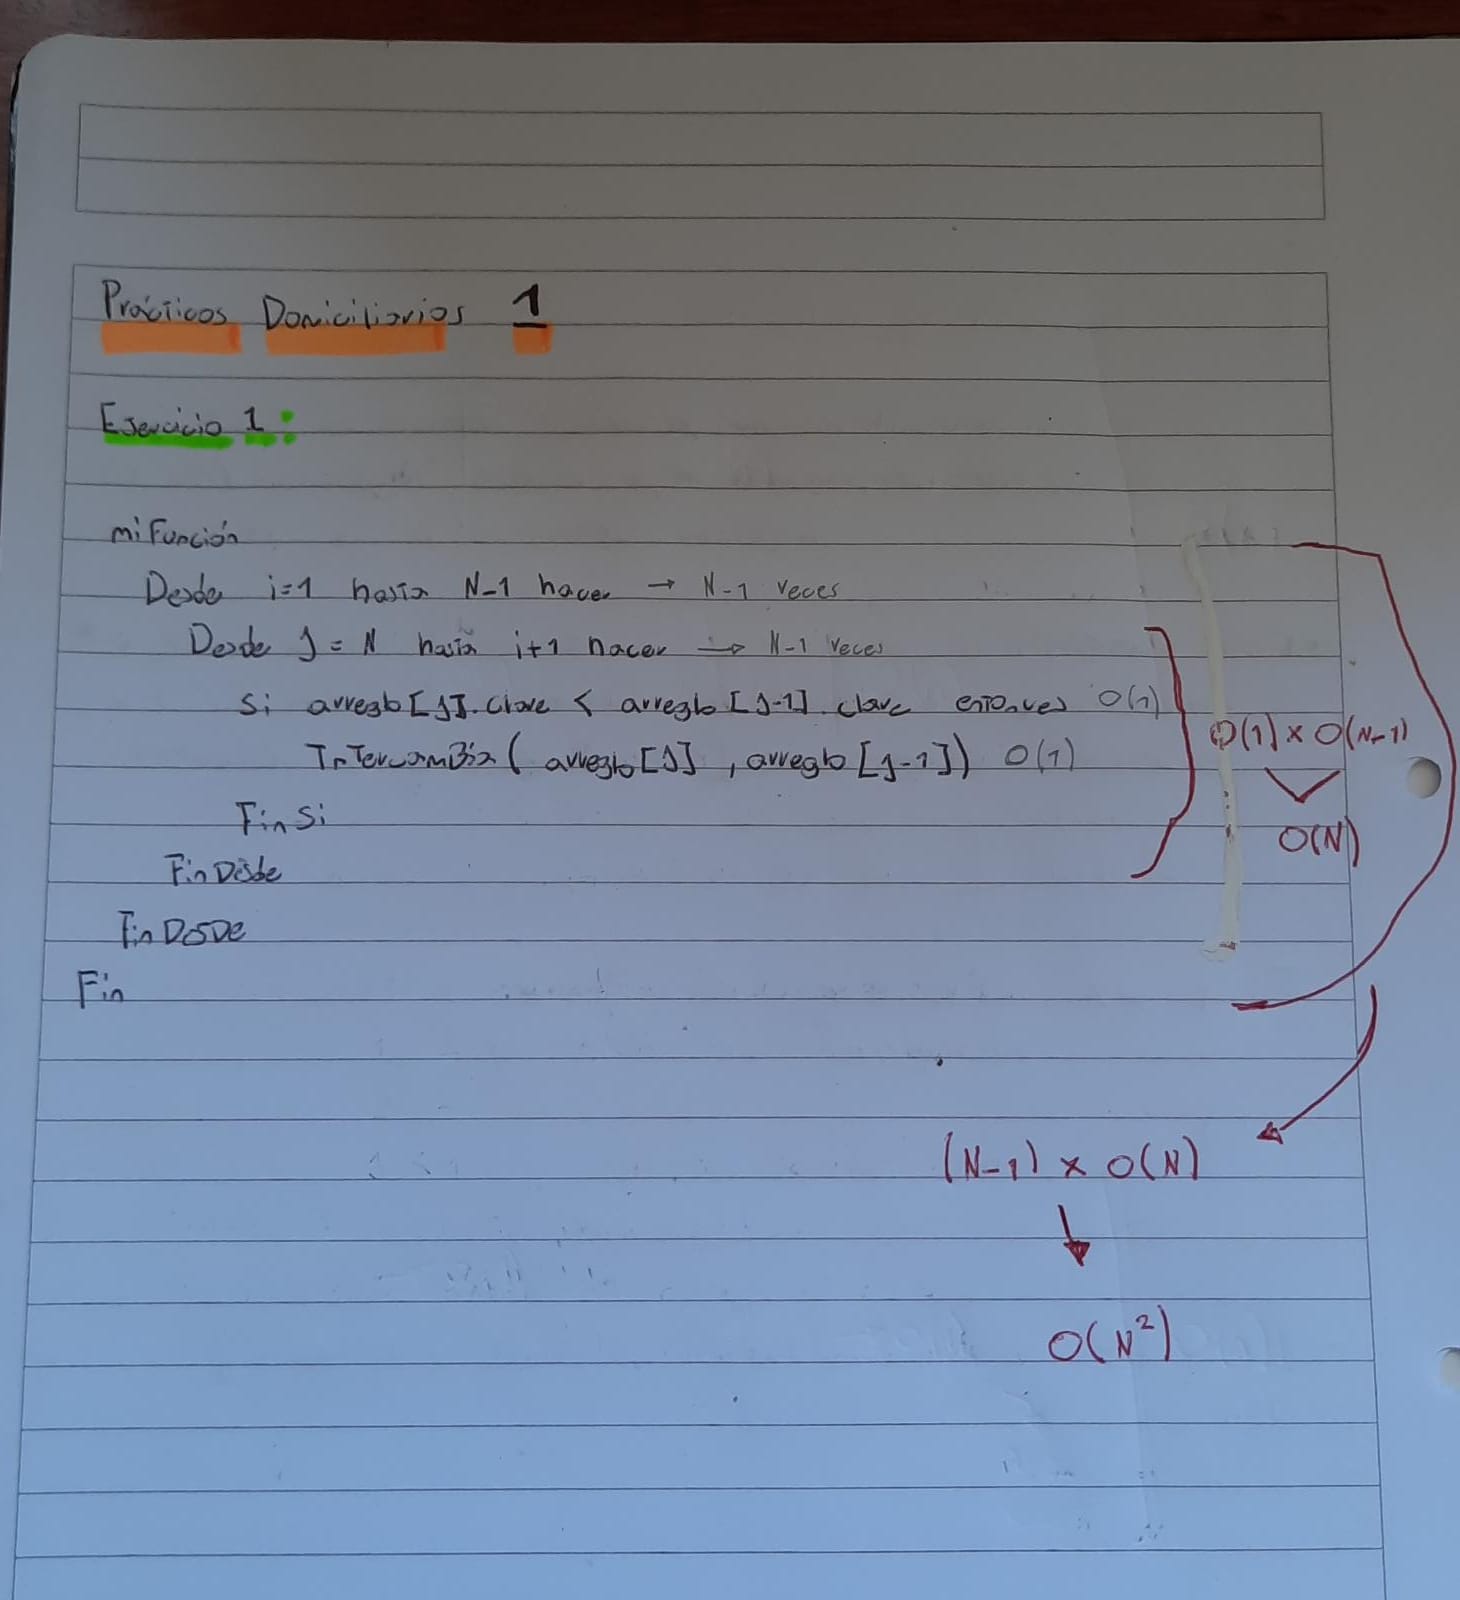 Prácticos Domiciliarios 1
Ejercicio 1:
mi Función
Desde i=1 hasta N-1 hacer → N-1 veces
Desde J = N hasta i+1 hacer → N-1 veces
Si arreglo [J].clave < arreglo [J-1].clave entonces O(1)
Intercambia (arreglo [J], arreglo [J-1]) O(1)
Fin Si
Fin Desde
Fin Desde
Fin
O(1) x O(N-1)
O(N)
(N-1) x O(N)
↓
O(N²)